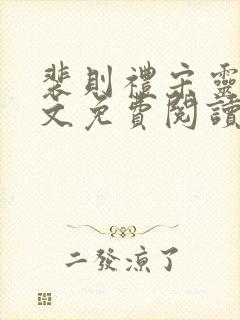 裴則禮宋靈
文免費閱讀
二發涼了